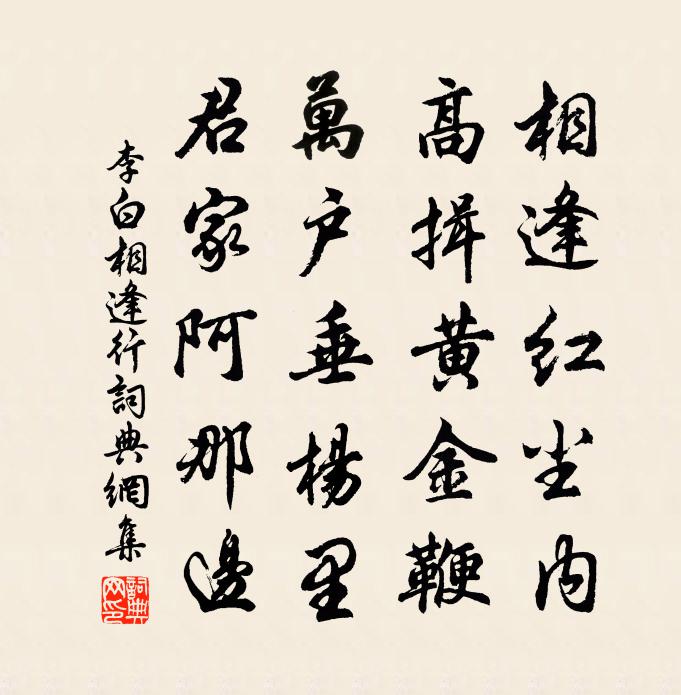 相逢紅尘内
高揖黃金鞭
萬户垂楊里
君家阿那邊
李白相逢行詞典網集
詞典網印